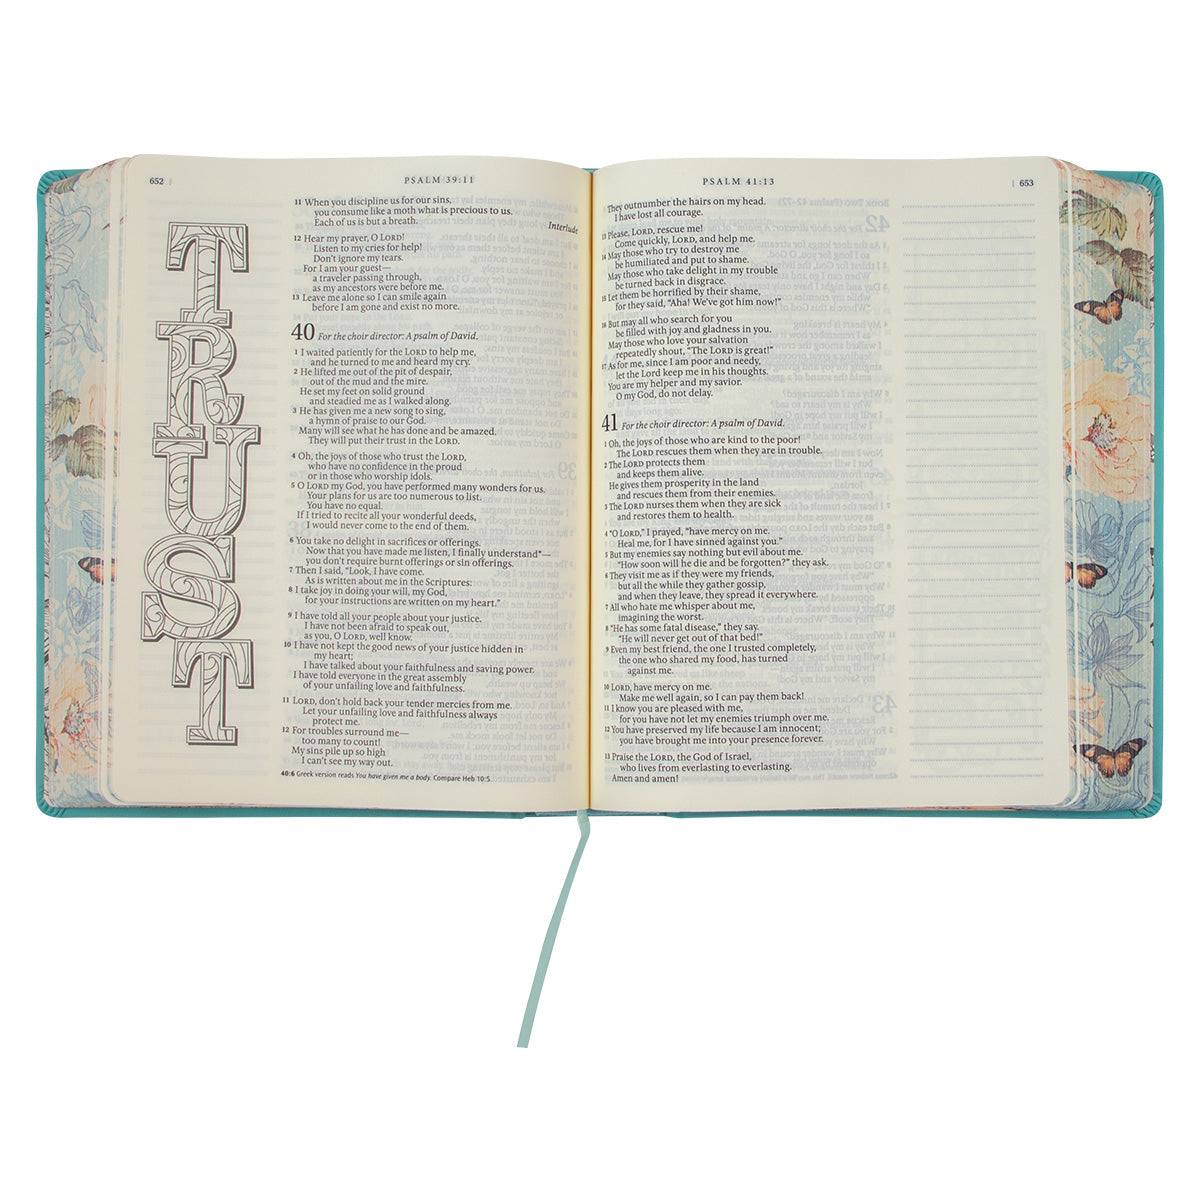 652
PSALM 39:11
TRUST
11 When you discipline us for our sins,
you consume like a moth what is precious to us.
Each of us is but a breath.
Interlude
12 Hear my prayer, O LORD!
Listen to my cries for help!
Don't ignore my tears.
For I am your guest—
a traveler passing through,
as my ancestors were before me.
13 Leave me alone so I can smile again
before I am gone and exist no more.
40 For the choir director: A psalm of David.
1 I waited patiently for the LORD to help me,
and he turned to me and heard my cry.
2 He lifted me out of the pit of despair,
out of the mud and the mire.
He set my feet on solid ground
and steadied me as I walked along.
3 He has given me a new song to sing,
a hymn of praise to our God.
Many will see what he has done and be amazed.
They will put their trust in the LORD.
4 Oh, the joys of those who trust the LORD,
who have no confidence in the proud
or in those who worship idols.
5 O LORD my God, you have performed many wonders for us.
Your plans for us are too numerous to list.
You have no equal.
If I tried to recite all your wonderful deeds,
I would never come to the end of them.
6 You take no delight in sacrifices or offerings.
Now that you have made me listen, I finally understand*—
you don't require burnt offerings or sin offerings.
7 Then I said, "Look, I have come.
As is written about me in the Scriptures:
8 I take joy in doing your will, my God,
for your instructions are written on my heart."
9 I have told all your people about your justice.
I have not been afraid to speak out,
as you, O LORD, well know.
10 I have not kept the good news of your justice hidden in
my heart;
I have talked about your faithfulness and saving power.
I have told everyone in the great assembly
of your unfailing love and faithfulness.
11 LORD, don't hold back your tender mercies from me.
Let your unfailing love and faithfulness always
protect me.
12 For troubles surround me—
too many to count!
My sins pile up so high
I can't see my way out.
40:6 Greek version reads You have given me a body. Compare Heb 10:5.
PSALM 41:13
653
They outnumber the hairs on my head.
I have lost all courage.
13 Please, LORD, rescue me!
Come quickly, LORD, and help me.
14 May those who try to destroy me
be humiliated and put to shame.
May those who take delight in my trouble
be turned back in disgrace.
15 Let them be horrified by their shame,
for they said, "Aha! We've got him now!"
16 But may all who search for you
be filled with joy and gladness in you.
May those who love your salvation
repeatedly shout, "The LORD is great!"
17 As for me, since I am poor and needy,
let the Lord keep me in his thoughts.
You are my helper and my savior.
O my God, do not delay.
41 For the choir director: A psalm of David.
1 Oh, the joys of those who are kind to the poor!
The LORD rescues them when they are in trouble.
2 The LORD protects them
and keeps them alive.
He gives them prosperity in the land
and rescues them from their enemies.
3 The LORD nurses them when they are sick
and restores them to health.
4 "O LORD," I prayed, "have mercy on me.
Heal me, for I have sinned against you."
5 But my enemies say nothing but evil about me.
"How soon will he die and be forgotten?" they ask.
6 They visit me as if they were my friends,
but all the while they gather gossip,
and when they leave, they spread it everywhere.
7 All who hate me whisper about me,
imagining the worst.
8 "He has some fatal disease," they say.
"He will never get out of that bed!"
9 Even my best friend, the one I trusted completely,
the one who shared my food, has turned
against me.
10 LORD, have mercy on me.
Make me well again, so I can pay them back!
11 I know you are pleased with me,
for you have not let my enemies triumph over me.
12 You have preserved my life because I am innocent;
you have brought me into your presence forever.
13 Praise the LORD, the God of Israel,
who lives from everlasting to everlasting.
Amen and amen!